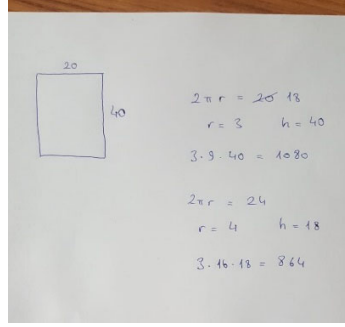 20
40
2πr = 20 18
r = 3 h = 40
3·9·40 = 1080
2πr = 24
r = 4 h = 18
3·16·18 = 864